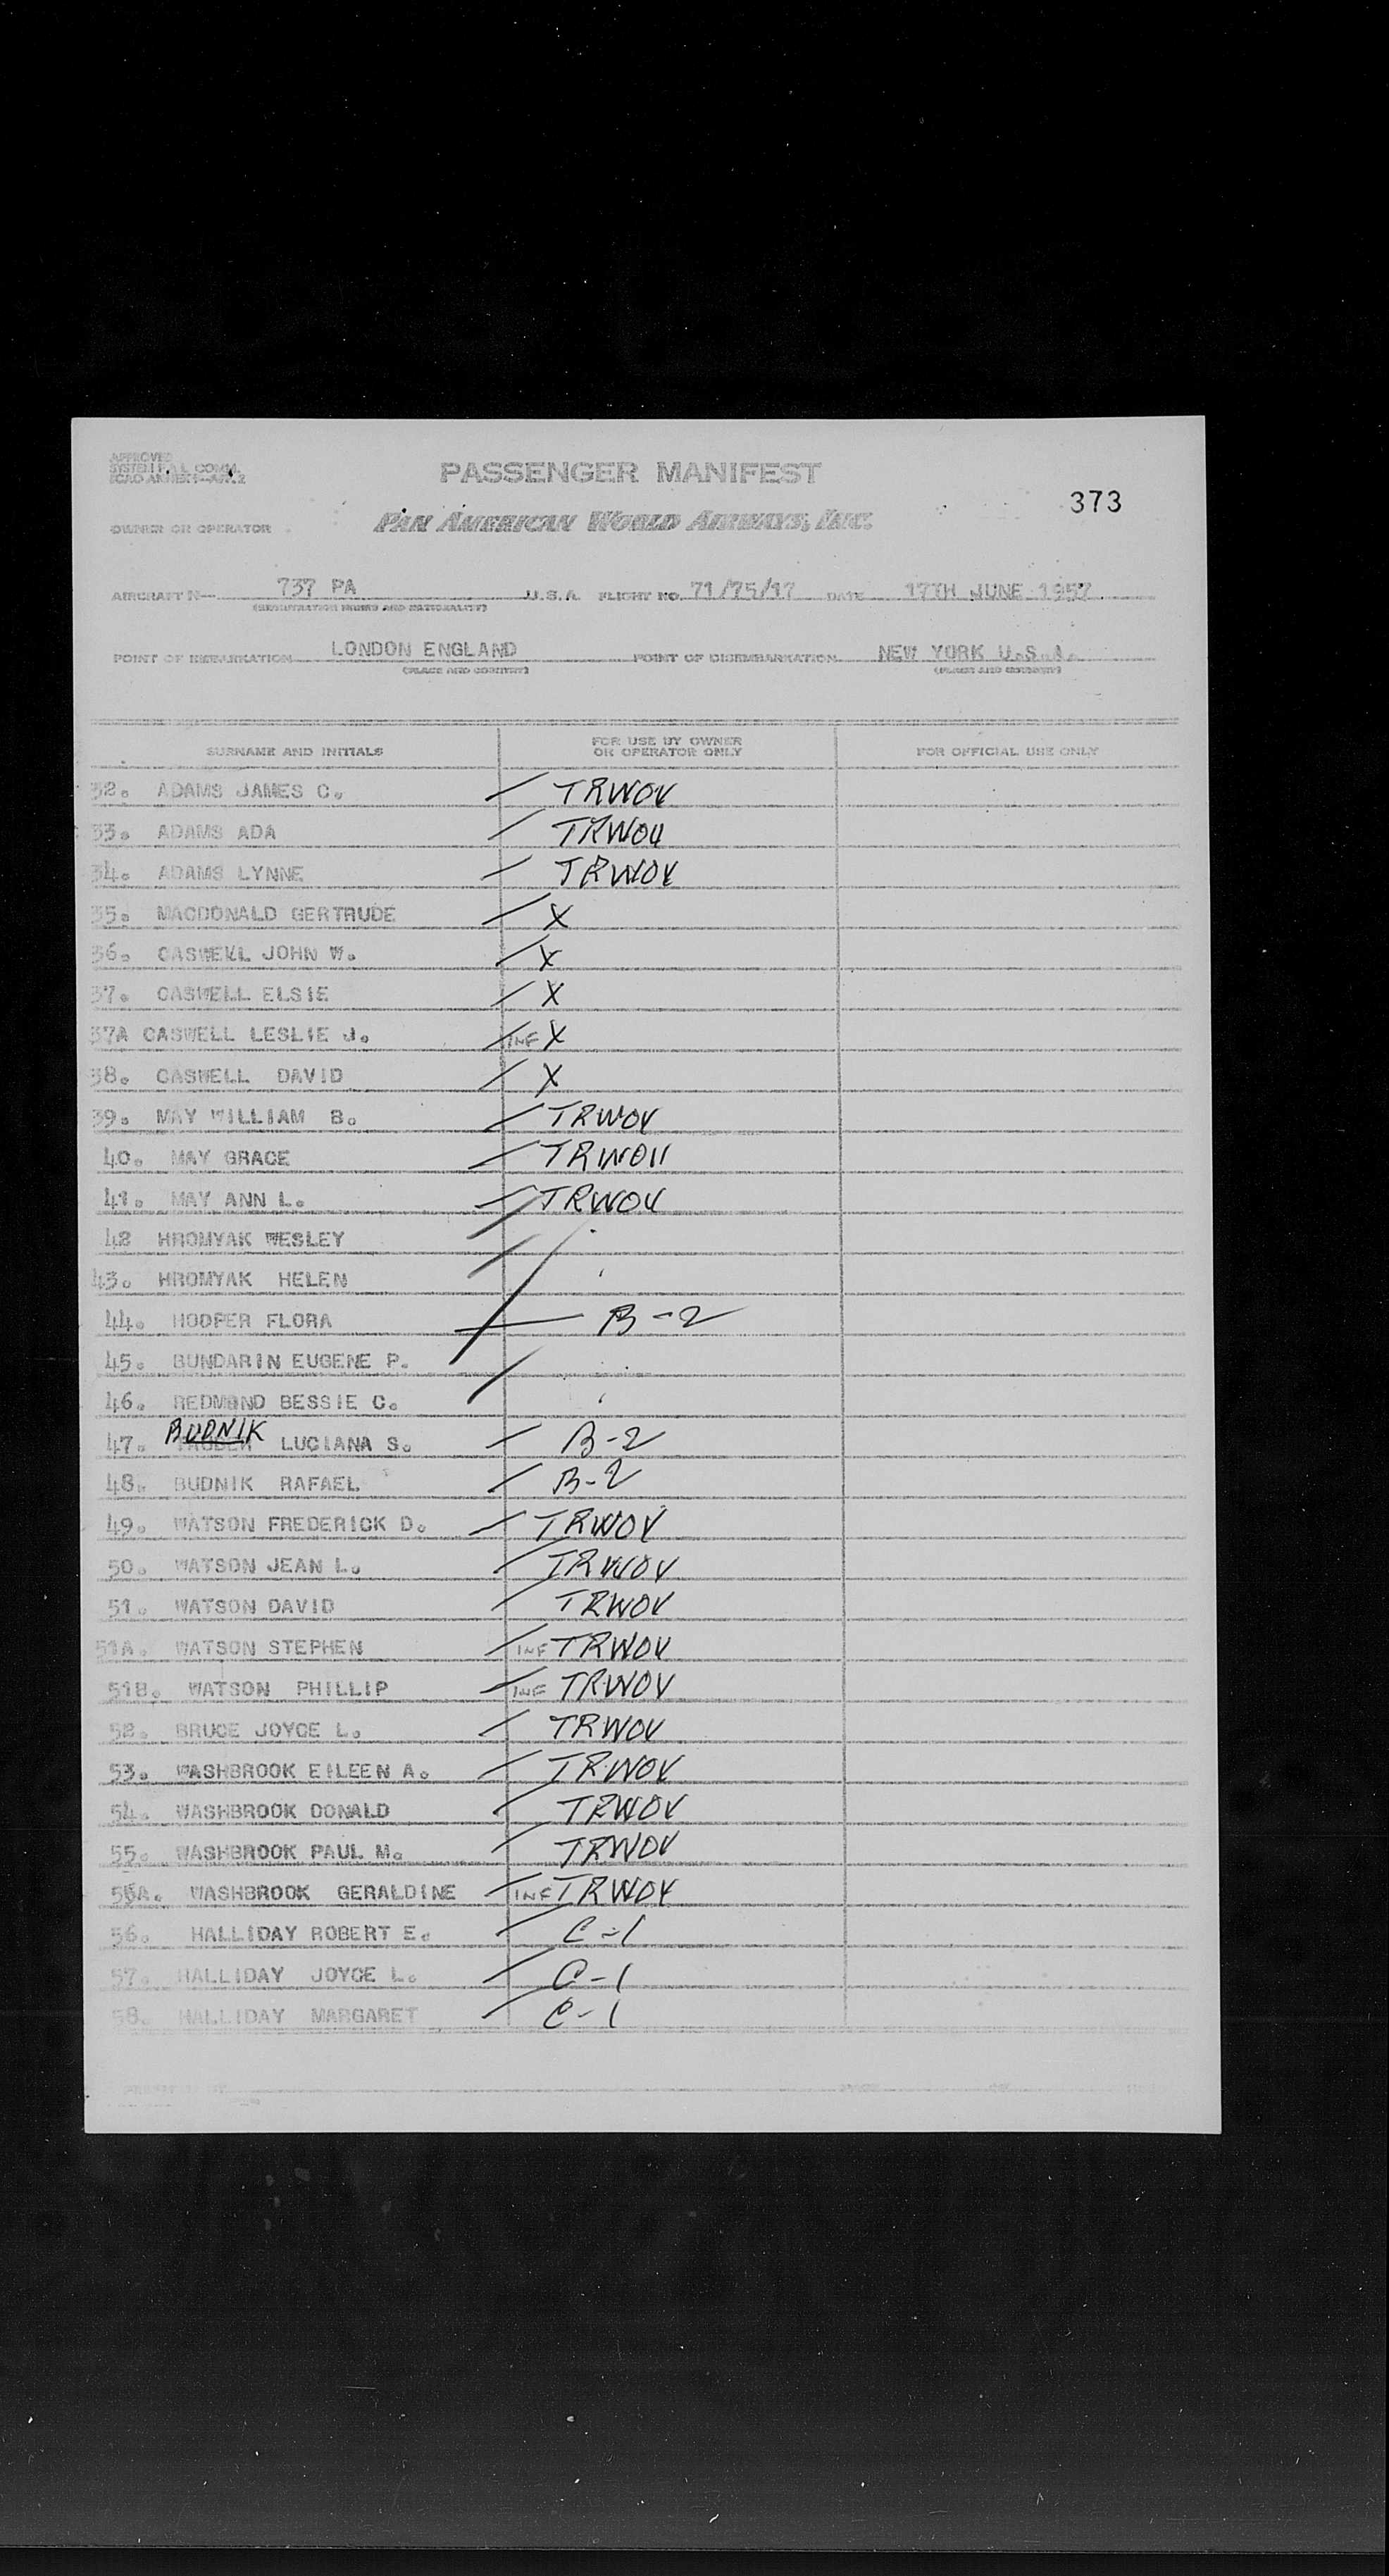 APPROVED
PASSENGER MANIFEST
373
OWNER OR OPERATOR
PAN AMERICAN WORLD AIRWAYS, INC.
AIRCRAFT N— 737 PA U.S.A. FLIGHT NO. 71/75/17 DATE 17TH JUNE 1957
(REGISTRATION MARKS AND NATIONALITY)
POINT OF EMBARKATION LONDON ENGLAND POINT OF DISEMBARKATION NEW YORK U.S.A.
(PLACE AND COUNTRY) (PLACE AND COUNTRY)
SURNAME AND INITIALS FOR USE BY OWNER OR OPERATOR ONLY FOR OFFICIAL USE ONLY
32. ADAMS JAMES C. TRWOV
33. ADAMS ADA TRWOV
34. ADAMS LYNNE TRWOV
35. MACDONALD GERTRUDE X
36. CASWELL JOHN W. X
37. CASWELL ELSIE X
37A CASWELL LESLIE J. INF X
38. CASWELL DAVID X
39. MAY WILLIAM B. TRWOV
40. MAY GRACE TRWOV
41. MAY ANN L. TRWOV
42 HROMYAK WESLEY
43. HROMYAK HELEN
44. HOOPER FLORA B-2
45. BUNDARIN EUGENE P.
46. REDMOND BESSIE C.
BUDNIK
47. LUCIANA S. B-2
48. BUDNIK RAFAEL B-2
49. WATSON FREDERICK D. TRWOV
50. WATSON JEAN L. TRWOV
51. WATSON DAVID TRWOV
51A. WATSON STEPHEN INF TRWOV
51B. WATSON PHILLIP INF TRWOV
52. BRUCE JOYCE L. TRWOV
53. WASHBROOK EILEEN A. TRWOV
54. WASHBROOK DONALD TRWOV
55. WASHBROOK PAUL M. TRWOV
55A. WASHBROOK GERALDINE INF TRWOV
56. HALLIDAY ROBERT E. C-1
57. HALLIDAY JOYCE L. C-1
58. HALLIDAY MARGARET C-1